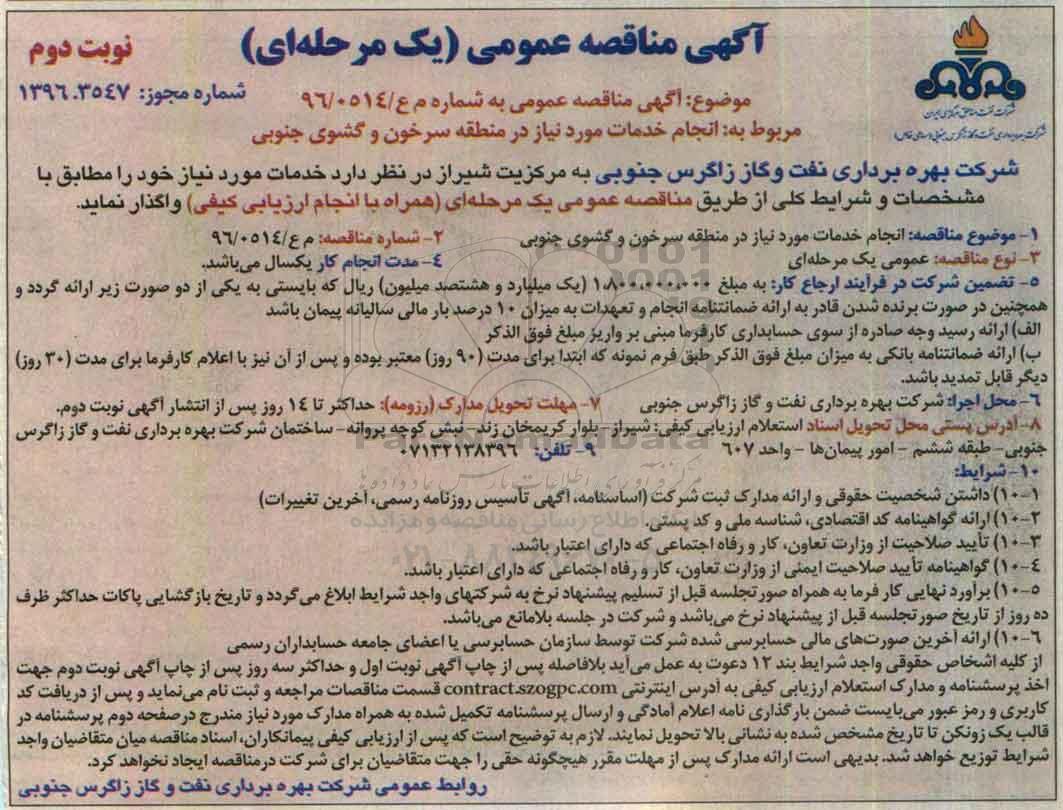 آگهی مناقصه عمومی (یک مرحله‌ای)
نوبت دوم
شماره مجوز: ۱۳۹۶.۳۵۴۷
شرکت نفت مناطق مرکزی ایران
موضوع: آگهی مناقصه عمومی به شماره م ع/۹۶/۰۵۱۴
مربوط به: انجام خدمات مورد نیاز در منطقه سرخون و گشوی جنوبی
شرکت بهره برداری نفت وگاز زاگرس جنوبی به مرکزیت شیراز در نظر دارد خدمات مورد نیاز خود را مطابق با
مشخصات و شرایط کلی از طریق مناقصه عمومی یک مرحله‌ای (همراه با انجام ارزیابی کیفی) واگذار نماید.
۱- موضوع مناقصه: انجام خدمات مورد نیاز در منطقه سرخون و گشوی جنوبی ۲- شماره مناقصه: م ع/۹۶/۰۵۱۴
۳- نوع مناقصه: عمومی یک مرحله‌ای ۴- مدت انجام کار یکسال می‌باشد.
۵- تضمین شرکت در فرآیند ارجاع کار: به مبلغ ۱،۸۰۰،۰۰۰،۰۰۰ (یک میلیارد و هشتصد میلیون) ریال که بایستی به یکی از دو صورت زیر ارائه گردد و
همچنین در صورت برنده شدن قادر به ارائه ضمانتنامه انجام و تعهدات به میزان ۱۰ درصد بار مالی سالیانه پیمان باشد
الف) ارائه رسید وجه صادره از سوی حسابداری کارفرما مبنی بر واریز مبلغ فوق الذکر
ب) ارائه ضمانتنامه بانکی به میزان مبلغ فوق الذکر طبق فرم نمونه که ابتدا برای مدت (۹۰ روز) معتبر بوده و پس از آن نیز با اعلام کارفرما برای مدت (۳۰ روز)
دیگر قابل تمدید باشد.
۶- محل اجرا: شرکت بهره برداری نفت و گاز زاگرس جنوبی ۷- مهلت تحویل مدارک (رزومه): حداکثر تا ۱۴ روز پس از انتشار آگهی نوبت دوم.
۸- آدرس پستی محل تحویل اسناد استعلام ارزیابی کیفی: شیراز- بلوار کریمخان زند- نبش کوچه پروانه- ساختمان شرکت بهره برداری نفت و گاز زاگرس
جنوبی- طبقه ششم - امور پیمان‌ها - واحد ۶۰۷ ۹- تلفن: ۰۷۱۳۲۱۳۸۳۹۶
۱۰- شرایط:
۱۰-۱) داشتن شخصیت حقوقی و ارائه مدارک ثبت شرکت (اساسنامه، آگهی تأسیس روزنامه رسمی، آخرین تغییرات)
۱۰-۲) ارائه گواهینامه کد اقتصادی، شناسه ملی و کد پستی.
۱۰-۳) تأیید صلاحیت از وزارت تعاون، کار و رفاه اجتماعی که دارای اعتبار باشد.
۱۰-۴) گواهینامه تأیید صلاحیت ایمنی از وزارت تعاون، کار و رفاه اجتماعی که دارای اعتبار باشد.
۱۰-۵) برآورد نهایی کار فرما به همراه صورتجلسه قبل از تسلیم پیشنهاد نرخ به شرکتهای واجد شرایط ابلاغ می‌گردد و تاریخ بازگشایی پاکات حداکثر ظرف
ده روز از تاریخ صورتجلسه قبل از پیشنهاد نرخ می‌باشد و شرکت در جلسه بلامانع می‌باشد.
۱۰-۶) ارائه آخرین صورت‌های مالی حسابرسی شده شرکت توسط سازمان حسابرسی یا اعضای جامعه حسابداران رسمی
از کلیه اشخاص حقوقی واجد شرایط بند ۱۲ دعوت به عمل می‌آید بلافاصله پس از چاپ آگهی نوبت اول و حداکثر سه روز پس از چاپ آگهی نوبت دوم جهت
اخذ پرسشنامه و مدارک استعلام ارزیابی کیفی به آدرس اینترنتی contract.szogpc.com قسمت مناقصات مراجعه و ثبت نام می‌نماید و پس از دریافت کد
کاربری و رمز عبور می‌بایست ضمن بارگذاری نامه اعلام آمادگی و ارسال پرسشنامه تکمیل شده به همراه مدارک مورد نیاز مندرج درصفحه دوم پرسشنامه در
قالب یک زونکن تا تاریخ مشخص شده به نشانی بالا تحویل نمایند. لازم به توضیح است که پس از ارزیابی کیفی پیمانکاران، اسناد مناقصه میان متقاضیان واجد
شرایط توزیع خواهد شد. بدیهی است ارائه مدارک پس از مهلت مقرر هیچگونه حقی را جهت متقاضیان برای شرکت درمناقصه ایجاد نخواهد کرد.
روابط عمومی شرکت بهره برداری نفت و گاز زاگرس جنوبی